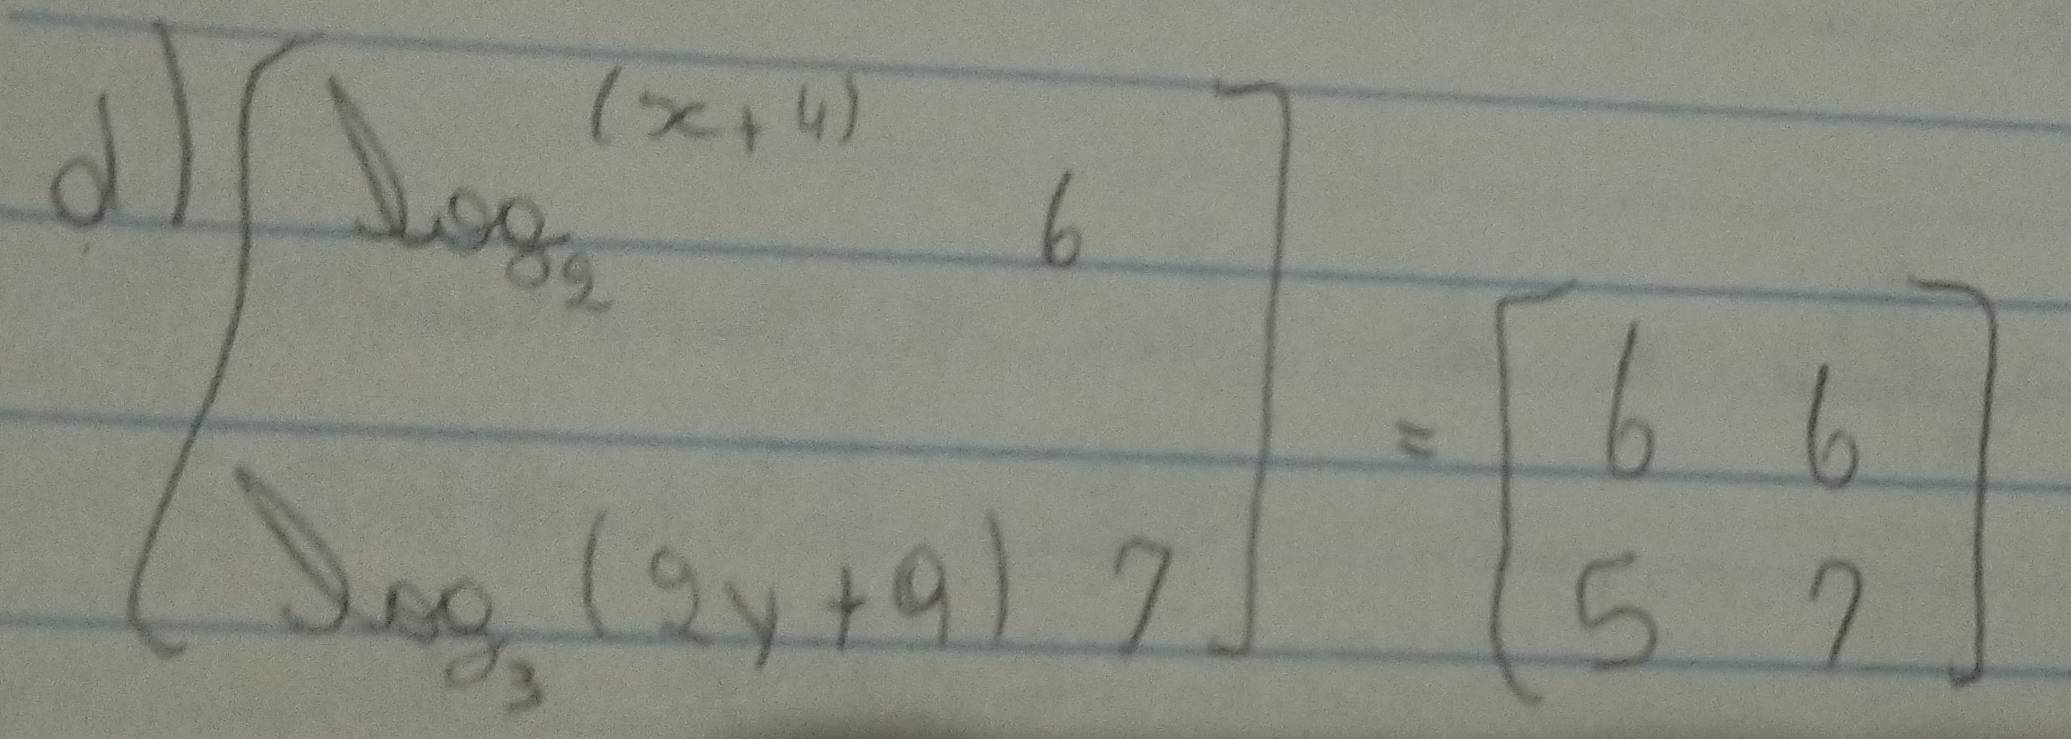 d) [ log₂ (x+4) 6 ]
= [ 6 6 ]
[ log₃ (2y+9) 7 ]
[ 5 7 ]